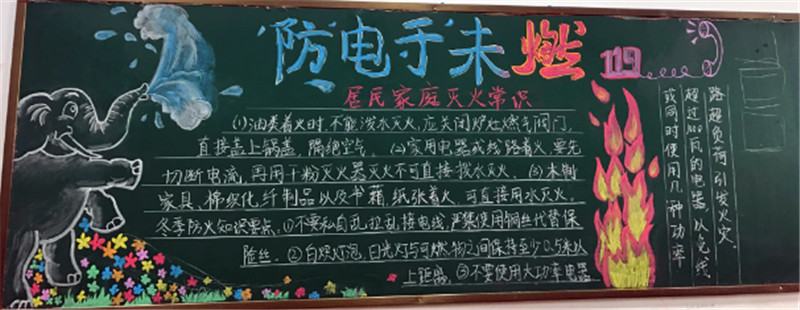 防电于未燃 119
居民家庭灭火常识
(1)油类着火时,不能泼水灭火,应关闭炉灶燃气阀门,
直接盖上锅盖,隔绝空气。(2)家用电器或线路着火,要先
切断电流,再用干粉灭火器灭火不可直接拨水灭火。(3)木制
家具、棉织化纤制品以及书籍,纸张着火,可直接用水灭火。
冬季防火知识要点:①不要私自乱拉乱接电线,严禁使用铜丝代替保
险丝。②白炽灯泡,日光灯与可燃物之间保持至少0.5米以
上距离。③不要使用大功率电器
或同时使用几种功率
超过100瓦的电器,以免线
路超负荷引发火灾.